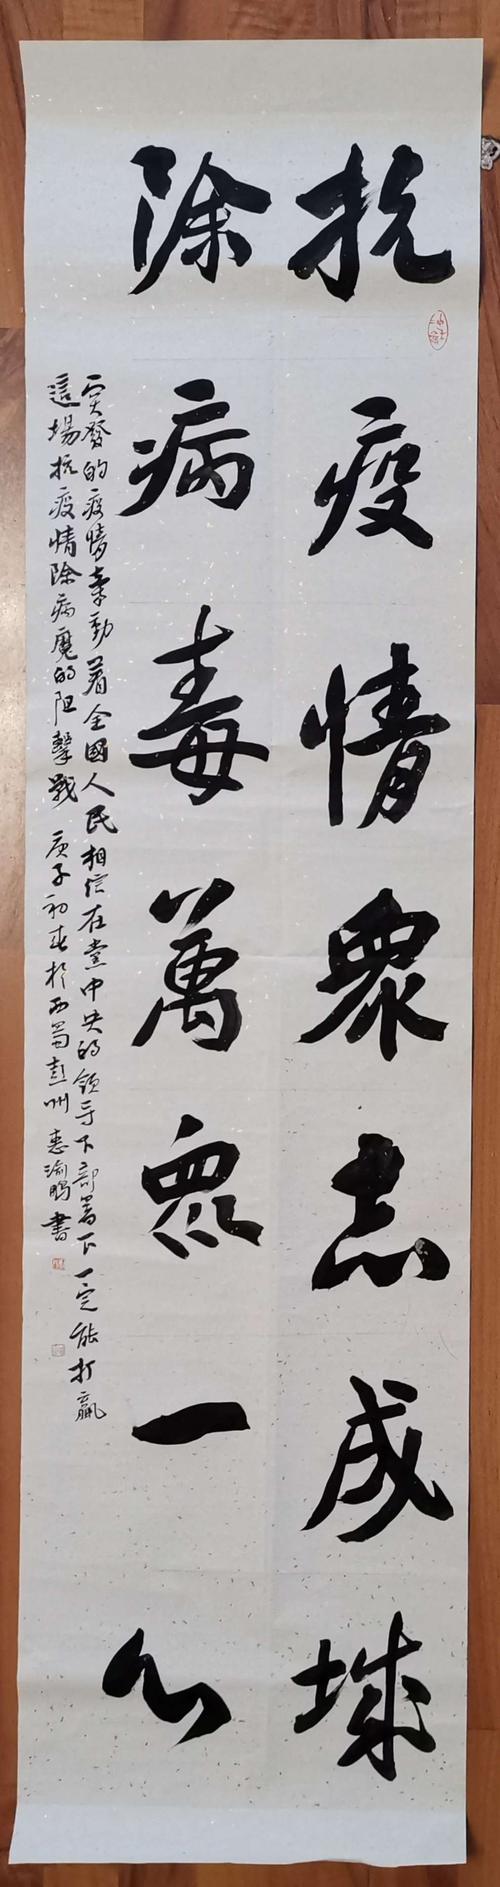 抗疫情眾志成城
除病毒萬眾一心
突發的疫情牽動着全國人民相信在黨中央的領导下部署下一定能打贏
這場抗疫情除病魔的阻擊戰 庚子初春於西蜀彭州 惠渝鵬書